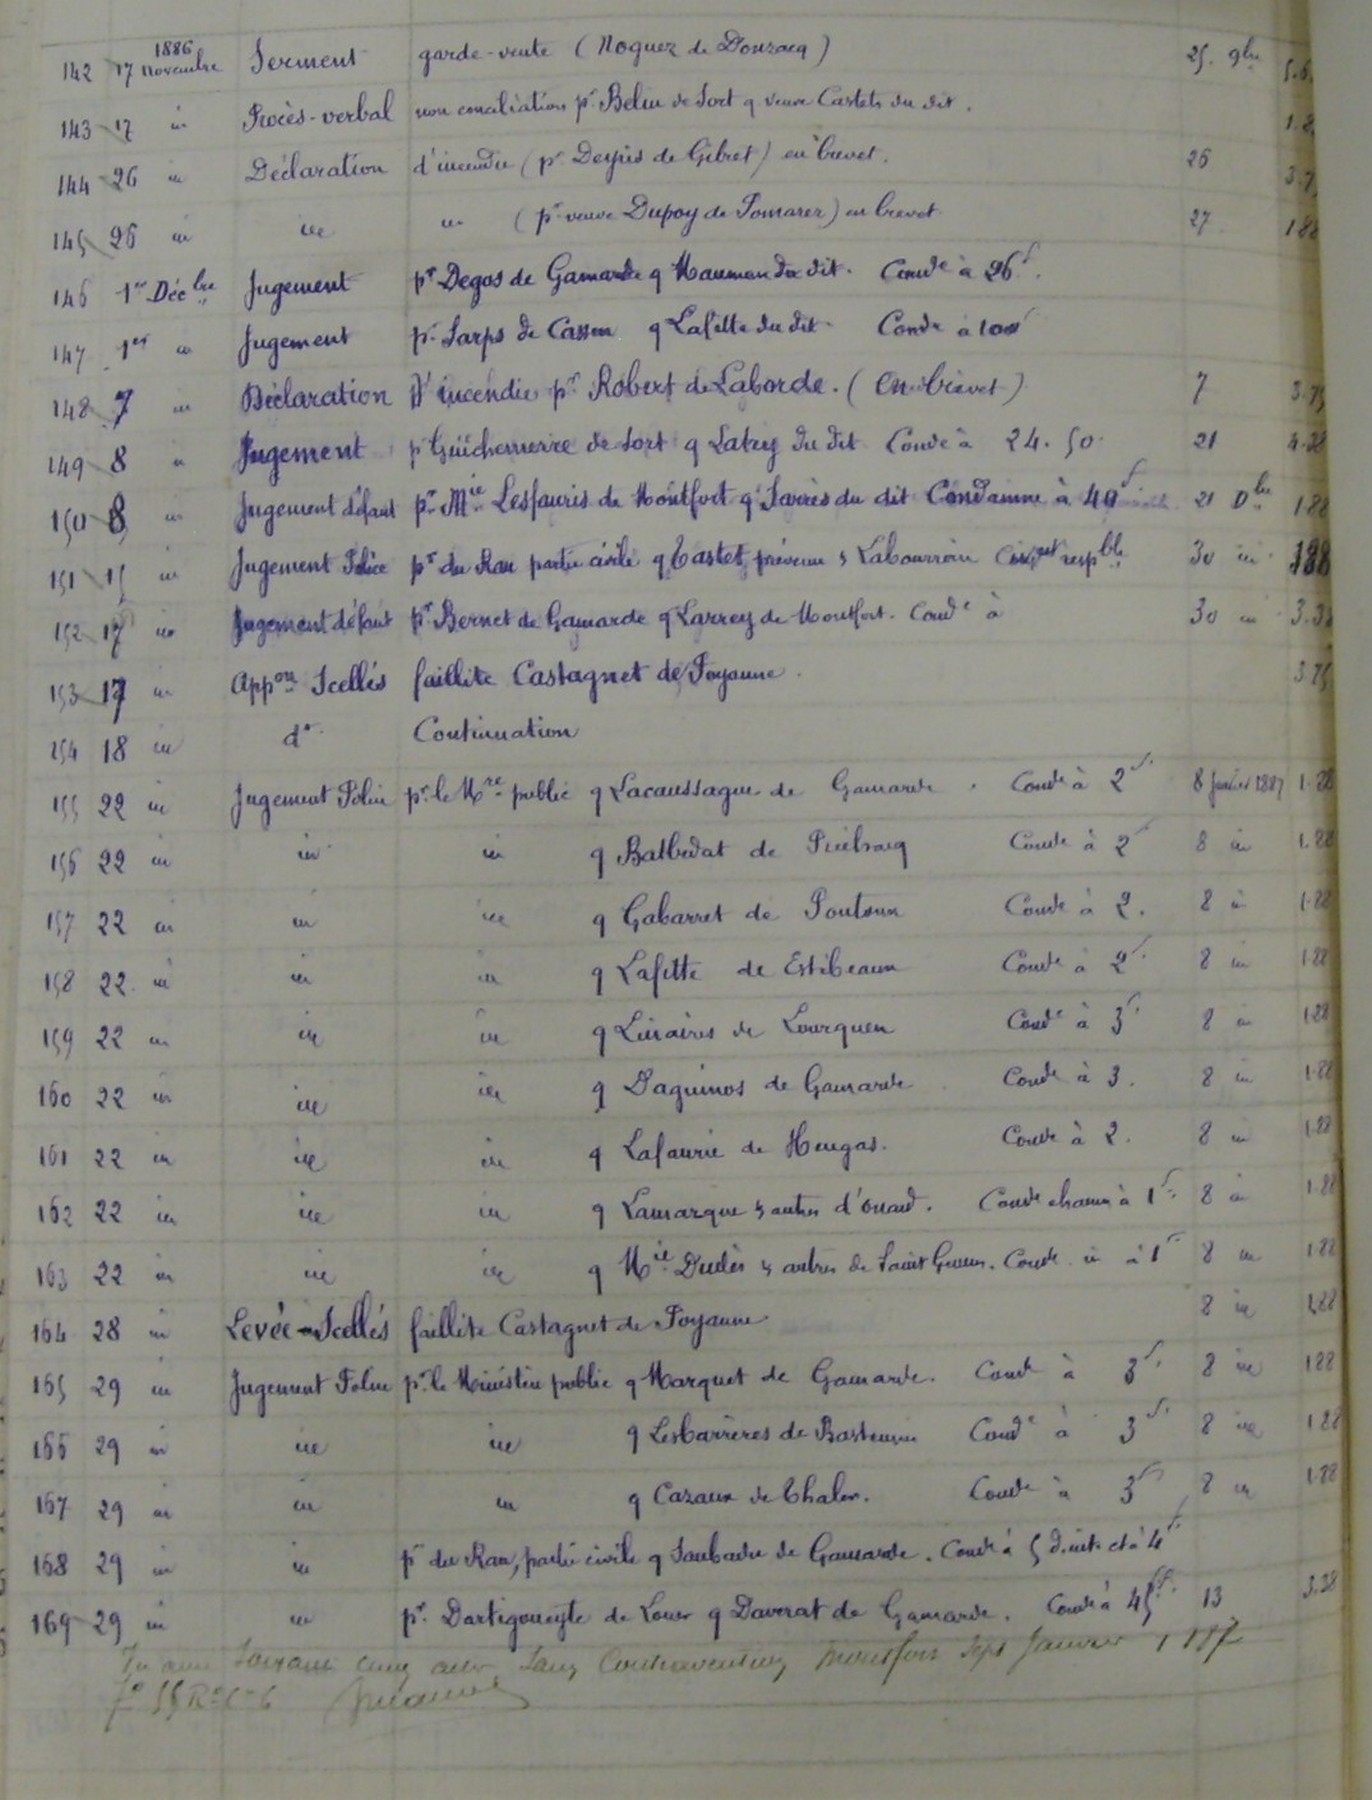 142 17 1886 Novembre Serment garde-vente (Noguez de Donzacq) 25. 9bre
143 17 in Procès-verbal non conciliation pr Belin de Sort q veuve Castets du dit. 1.8
144 26 in Déclaration d'incendie (pr de Gibret) en brevet. 26 3.7
145 26 in in in (pr veuve Dupoy de Pomarez) en brevet 27 188
146 1er Décbre Jugement pr Degos de Gamarde q du dit. Conde à 26f.
147 1er in Jugement pr Sarps de Cassen q Lafitte du dit. Conde à 100f
148 7 in Déclaration D'incendie pr Robert de Laborde. (en brevet) 7 3.75
149 8 in Jugement pr de Sort q Latry du dit Conde à 24.50 21 4.38
150 8 in Jugement défaut pr Mie Lesfauris de Montfort q Sarrès du dit Condamne à 40f. 21 Dbre 1.88
151 15 in Jugement Police pr du Rau partie civile q Castet prévenu & civt respble 30 in 188
152 17 in Jugement défaut pr Bernet de Gamarde q Larrey de Montfort. Conde à 30 in 3.38
153 17 in Appon Scellés faillite Castagnet de Poyanne. 3.75
154 18 in do Continuation
155 22 in Jugement Police pr le Mre public q Lacaussague de Gamarde. Conde à 2f. 8 janvier 1887 1.88
156 22 in in in q Batbedat de Conde à 2f 8 in 1.88
157 22 in in in q Gabarret de Pontonx Conde à 2. 8 in 1.88
158 22 in in in q Lafitte de Estibeaux Conde à 2f. 8 in 1.88
159 22 in in in q de Lourquen Conde à 3f. 8 in 1.88
160 22 in in in q Daguinos de Gamarde Conde à 3. 8 in 1.88
161 22 in in in q Lafaurie de Heugas. Conde à 2. 8 in 1.88
162 22 in in in q Lamarque & autres d'onard. Conde chacun à 1f. 8 in 1.88
163 22 in in in q Mie & autres de Saint Geours. Conde in à 1f 8 in 1.88
164 28 in Levée-Scellés faillite Castagnet de Poyanne 8 in 1.88
165 29 in Jugement Police pr le Ministère public q Marquet de Gamarde. Conde à 3f. 8 in 188
166 29 in in in q Lesbarrères de Bastennes Conde à 3f. 8 in 1.88
167 29 in in in q Cazaux de Conde à 3f 8 in 1.88
168 29 in in pr du Rau, partie civile q Soubadu de Gamarde. Conde à 5 d.int. et à 4f.
169 29 in in pr. Dartigoueyte de Louer q Daverat de Gamarde. Conde à 45f. 13 3.38
cinq sans Contravention Montfort Sept Janvier 1887
fo 55 Ro C 6